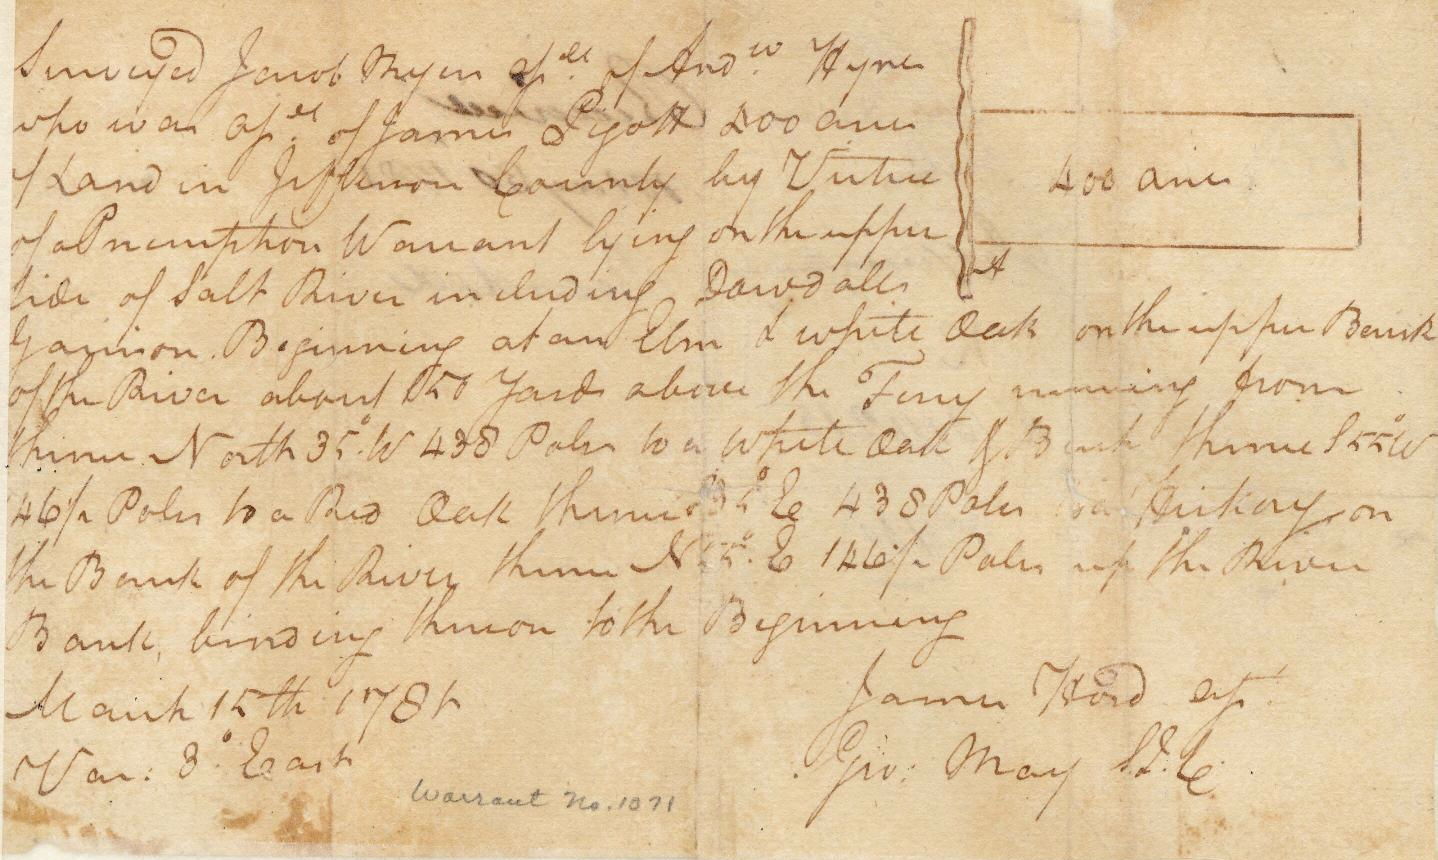 Surveyed Jacob Myers ass.ee of And.w Hynes
who was ass.ee of James Pigott 400 acres
of Land in Jefferson County by Virtue
of a Preemption Warrant lying on the upper
side of Salt River including Dowdalls
Garrison. Beginning at an Elm & white Oak on the upper Bank
of the River about 150 Yards above the Ferry running from
thence North 35° W 438 Poles to a white Oak & Beech thence S 55° W
Poles to a Red Oak thence 35° E 438 Poles to a Hickory on
the Bank of the River thence N 55° E 146 Poles up the River
Bank, binding thereon to the Beginning
March 15th 178
Var: 3° East
400 acres
A
James Hord ass.
Geo: May S.J.C.
Warrant No. 1071